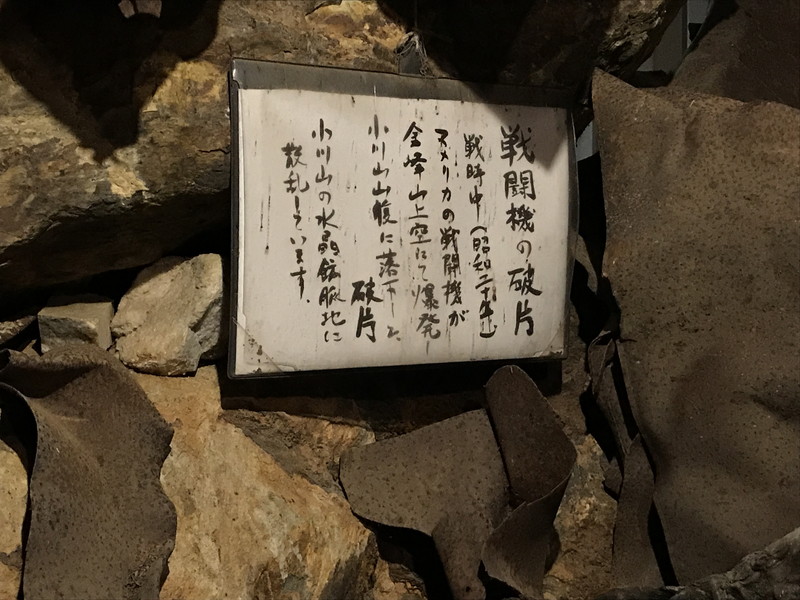 戦闘機の破片
戦時中(昭和二十年)
アメリカの戦闘機が
金峰山上空にて爆発
小川山山腹に落下した
破片
小川山の水晶鉱脈地に
散乱しています。